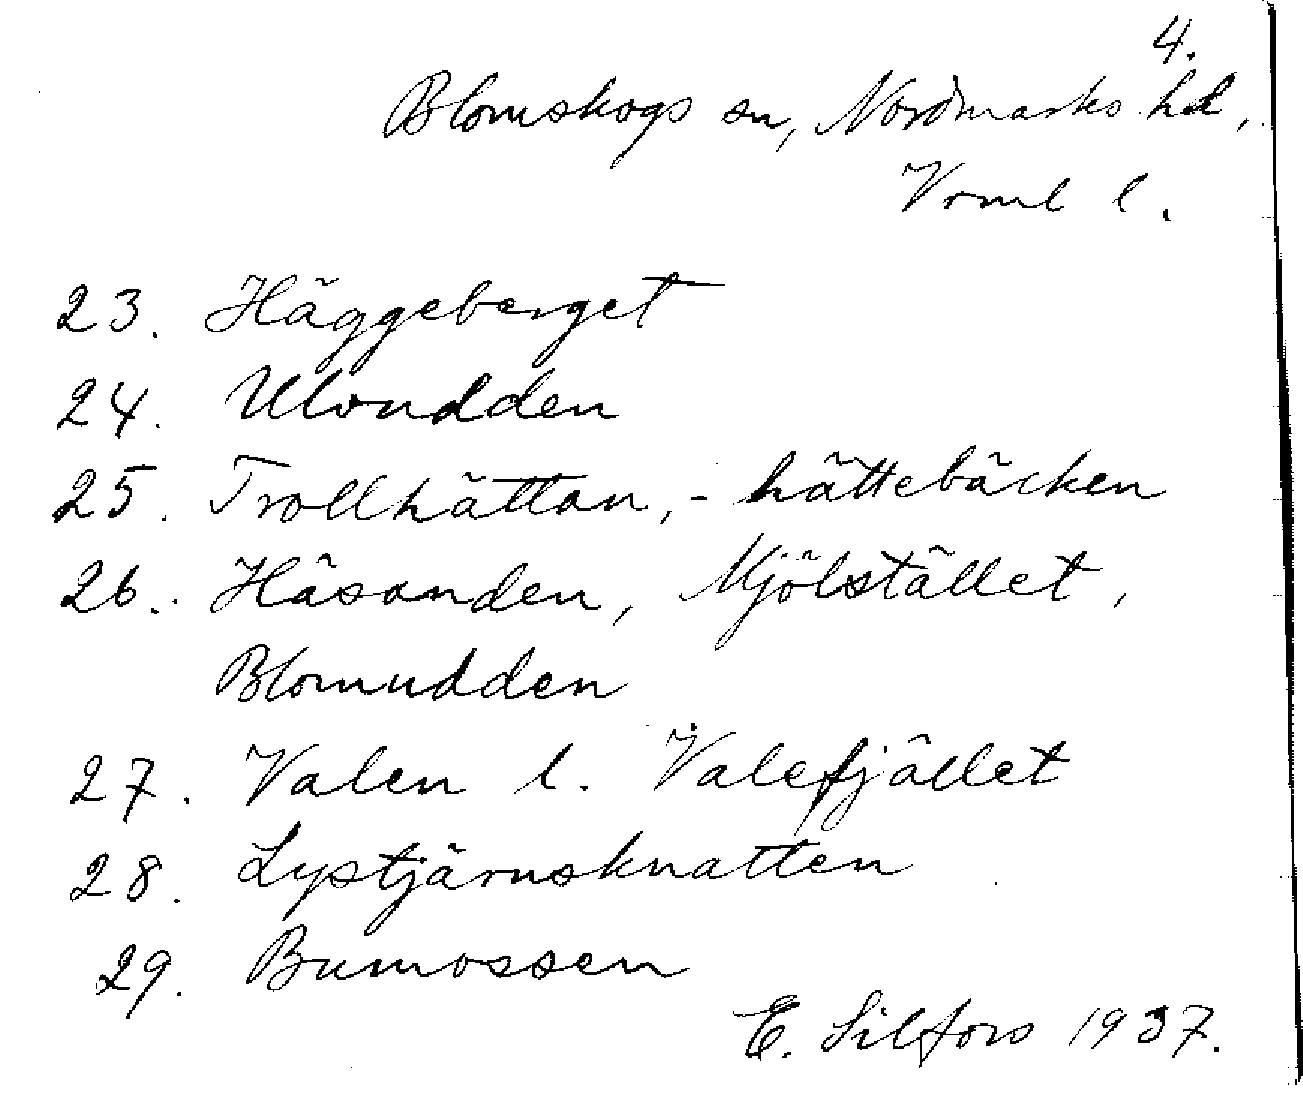 4.
Blomskogs sn, Nordmarks hd,
Vrml l.
23. Häggeberget
24. Ulvudden
25. Trollhättan, - hättebäcken
26. Håsanden, Mjölstället,
Blomudden
27. Valen l. Valefjället
28. Lystjärnsknatten
29. Bumossen
E. Silfors 1937.